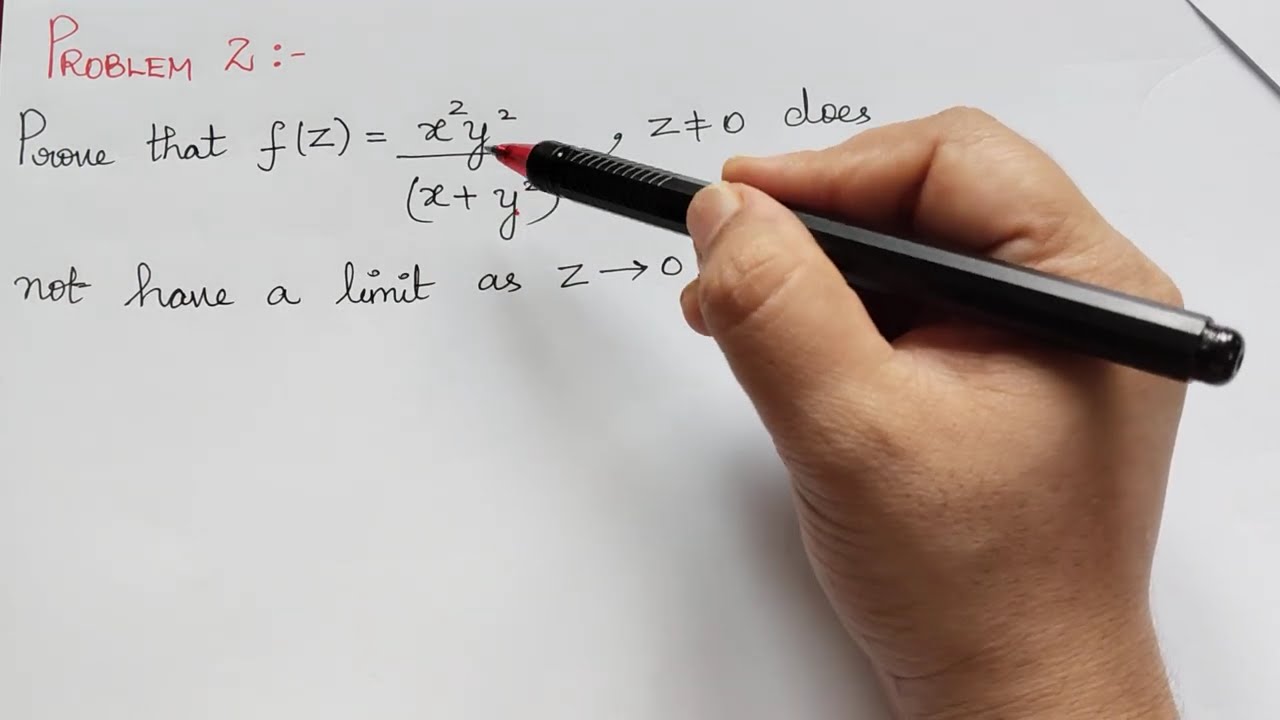 PROBLEM 2 :-
Prove that f(z) = x²y² / (x + y²) , z ≠ 0 does
not have a limit as z → 0